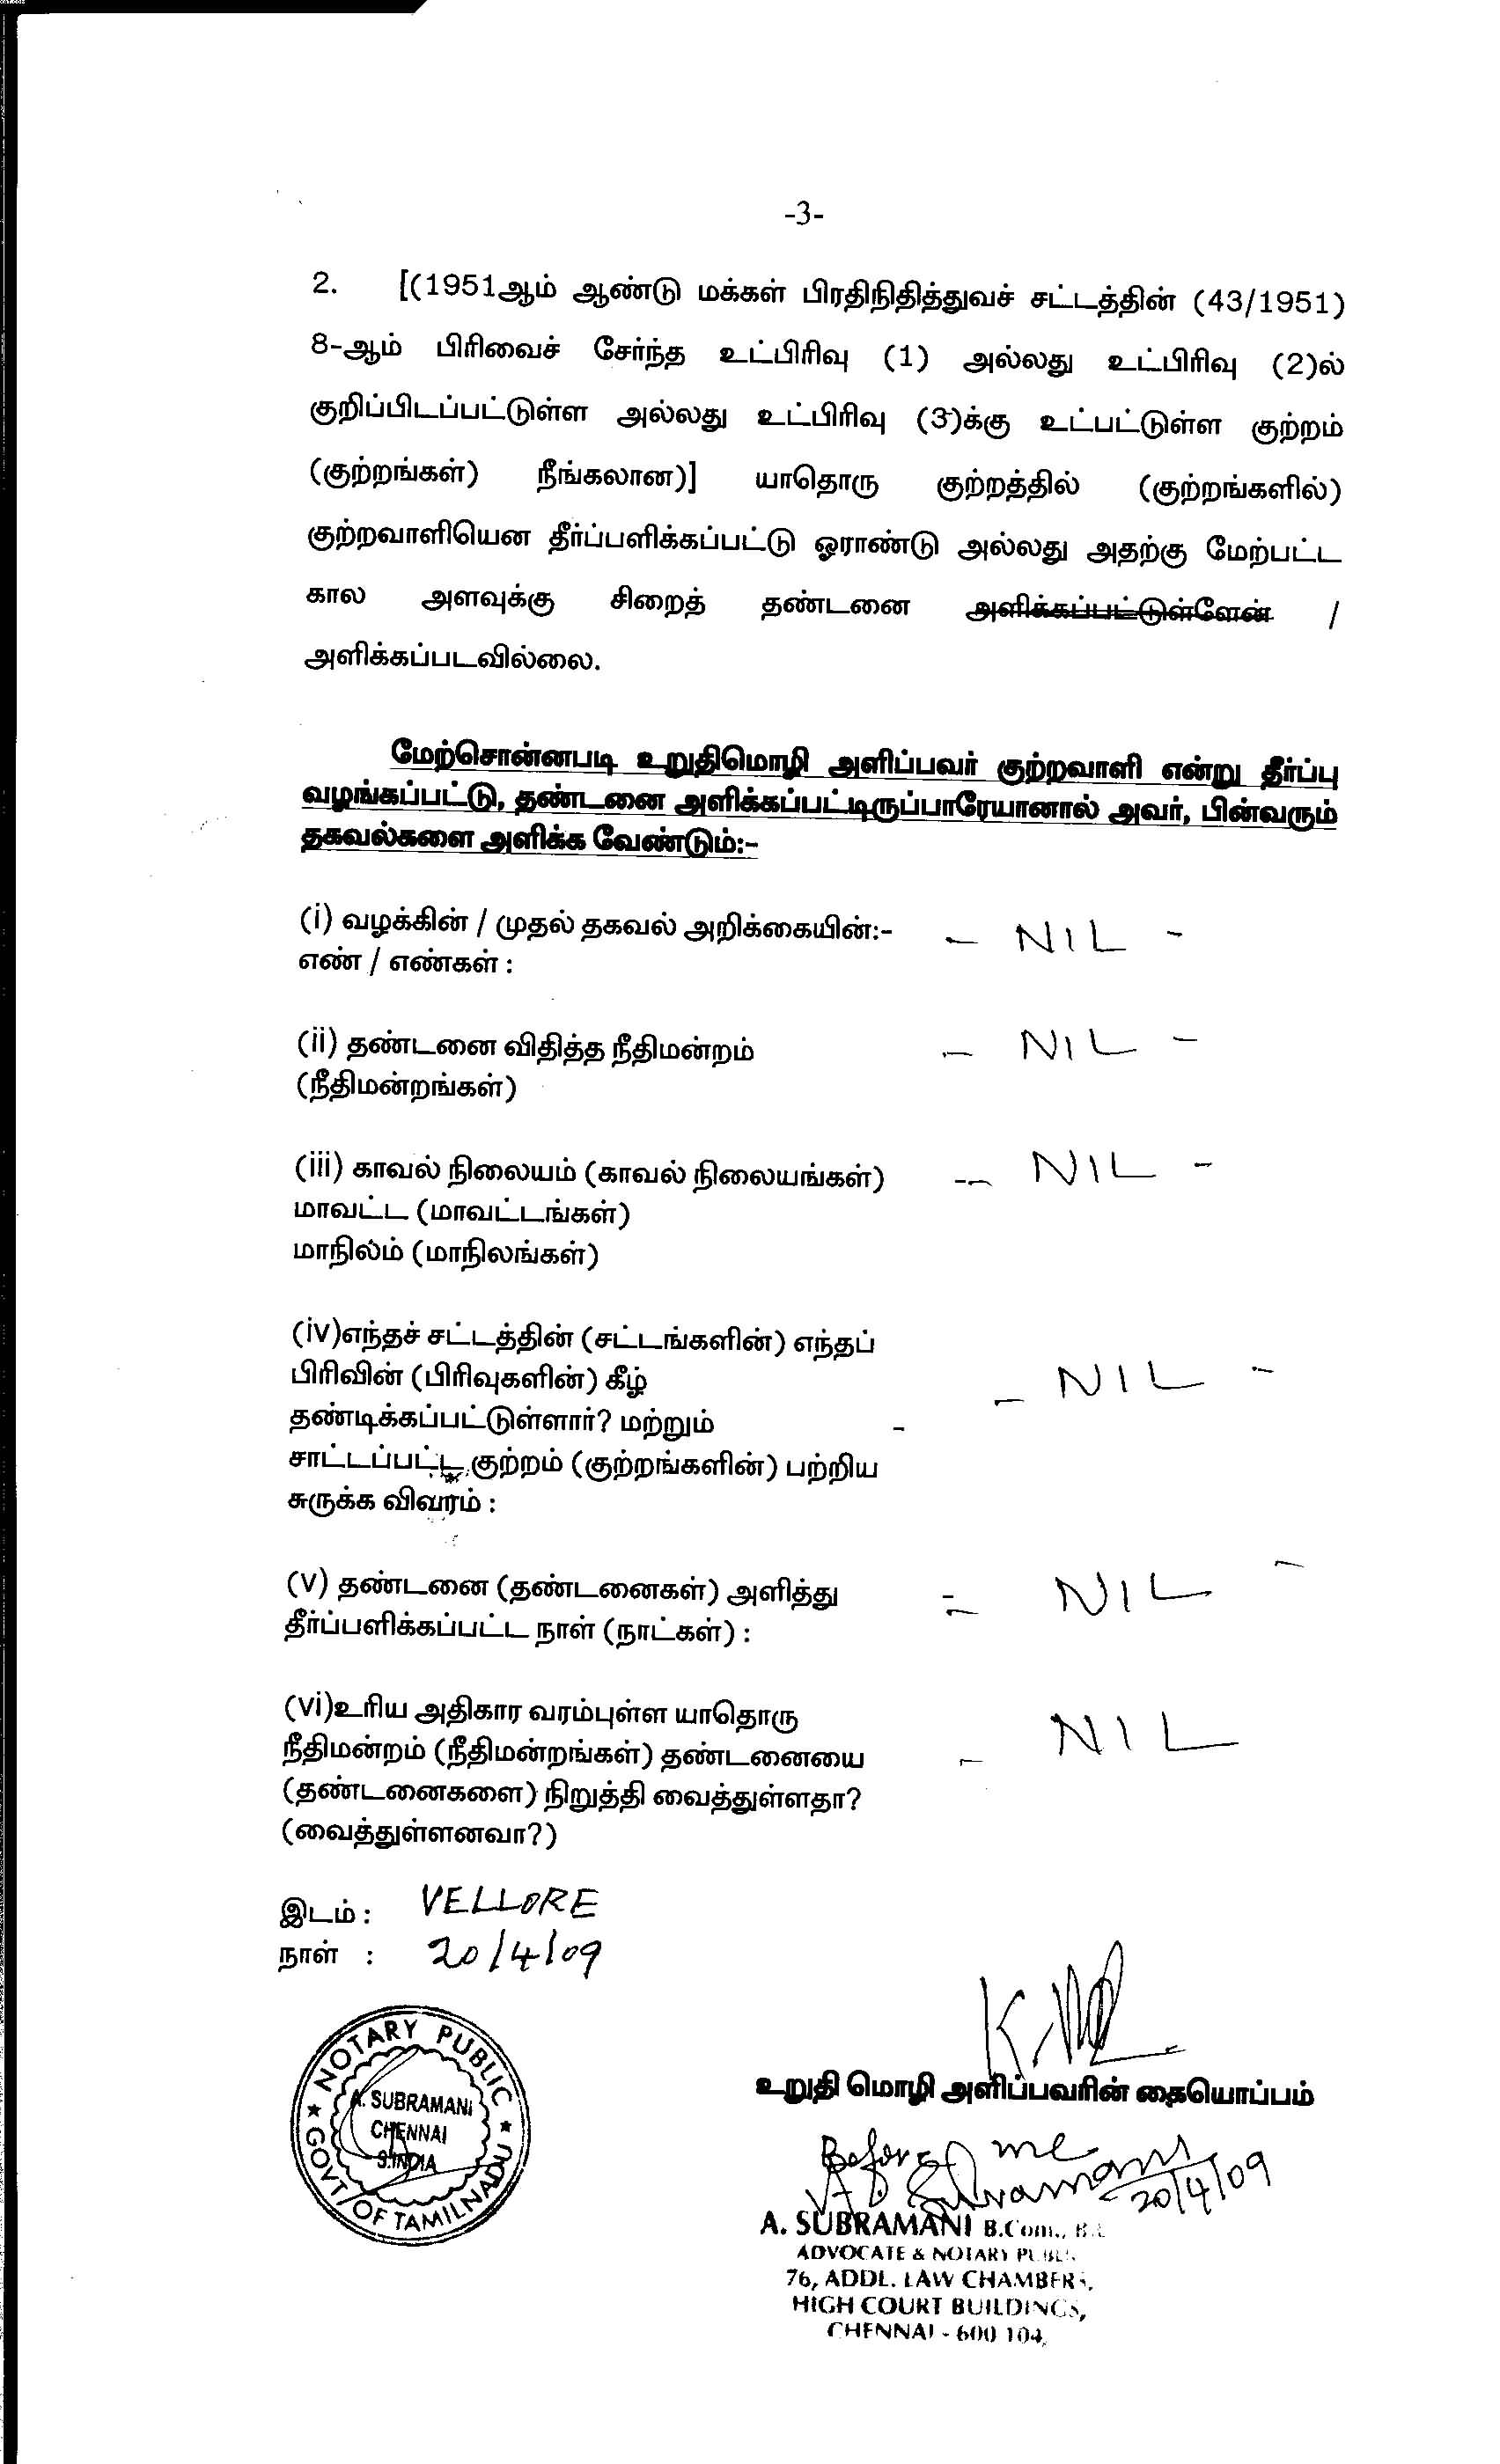 -3-
2. [(1951ஆம் ஆண்டு மக்கள் பிரதிநிதித்துவச் சட்டத்தின் (43/1951)
8-ஆம் பிரிவைச் சேர்ந்த உட்பிரிவு (1) அல்லது உட்பிரிவு (2)ல்
குறிப்பிடப்பட்டுள்ள அல்லது உட்பிரிவு (3)க்கு உட்பட்டுள்ள குற்றம்
(குற்றங்கள்) நீங்கலான)] யாதொரு குற்றத்தில் (குற்றங்களில்)
குற்றவாளியென தீர்ப்பளிக்கப்பட்டு ஓராண்டு அல்லது அதற்கு மேற்பட்ட
கால அளவுக்கு சிறைத் தண்டனை அளிக்கப்பட்டுள்ளேன் /
அளிக்கப்படவில்லை.
மேற்சொன்னபடி உறுதிமொழி அளிப்பவர் குற்றவாளி என்று தீர்ப்பு
வழங்கப்பட்டு, தண்டனை அளிக்கப்பட்டிருப்பாரேயானால் அவர், பின்வரும்
தகவல்களை அளிக்க வேண்டும்:-
(i) வழக்கின் / முதல் தகவல் அறிக்கையின்:- - NIL -
எண் / எண்கள் :
(ii) தண்டனை விதித்த நீதிமன்றம் - NIL -
(நீதிமன்றங்கள்)
(iii) காவல் நிலையம் (காவல் நிலையங்கள்) -- NIL -
மாவட்ட (மாவட்டங்கள்)
மாநிலம் (மாநிலங்கள்)
(iv)எந்தச் சட்டத்தின் (சட்டங்களின்) எந்தப்
பிரிவின் (பிரிவுகளின்) கீழ் - NIL -
தண்டிக்கப்பட்டுள்ளார்? மற்றும் -
சாட்டப்பட்ட குற்றம் (குற்றங்களின்) பற்றிய
சுருக்க விவரம் :
(v) தண்டனை (தண்டனைகள்) அளித்து - NIL -
தீர்ப்பளிக்கப்பட்ட நாள் (நாட்கள்) :
(vi)உரிய அதிகார வரம்புள்ள யாதொரு
நீதிமன்றம் (நீதிமன்றங்கள்) தண்டனையை - NIL
(தண்டனைகளை) நிறுத்தி வைத்துள்ளதா?
(வைத்துள்ளனவா?)
இடம் : VELLORE
நாள் : 20/4/09
NOTARY PUBLIC
A. SUBRAMANI
CHENNAI
S.INDIA
GOVT OF TAMILNADU
உறுதி மொழி அளிப்பவரின் கையொப்பம்
Before me
A. Subramani
20/4/09
A. SUBRAMANI B.Com., B.L
ADVOCATE & NOTARY PUBLIC
76, ADDL. LAW CHAMBERS,
HIGH COURT BUILDINGS,
CHENNAI - 600 104.